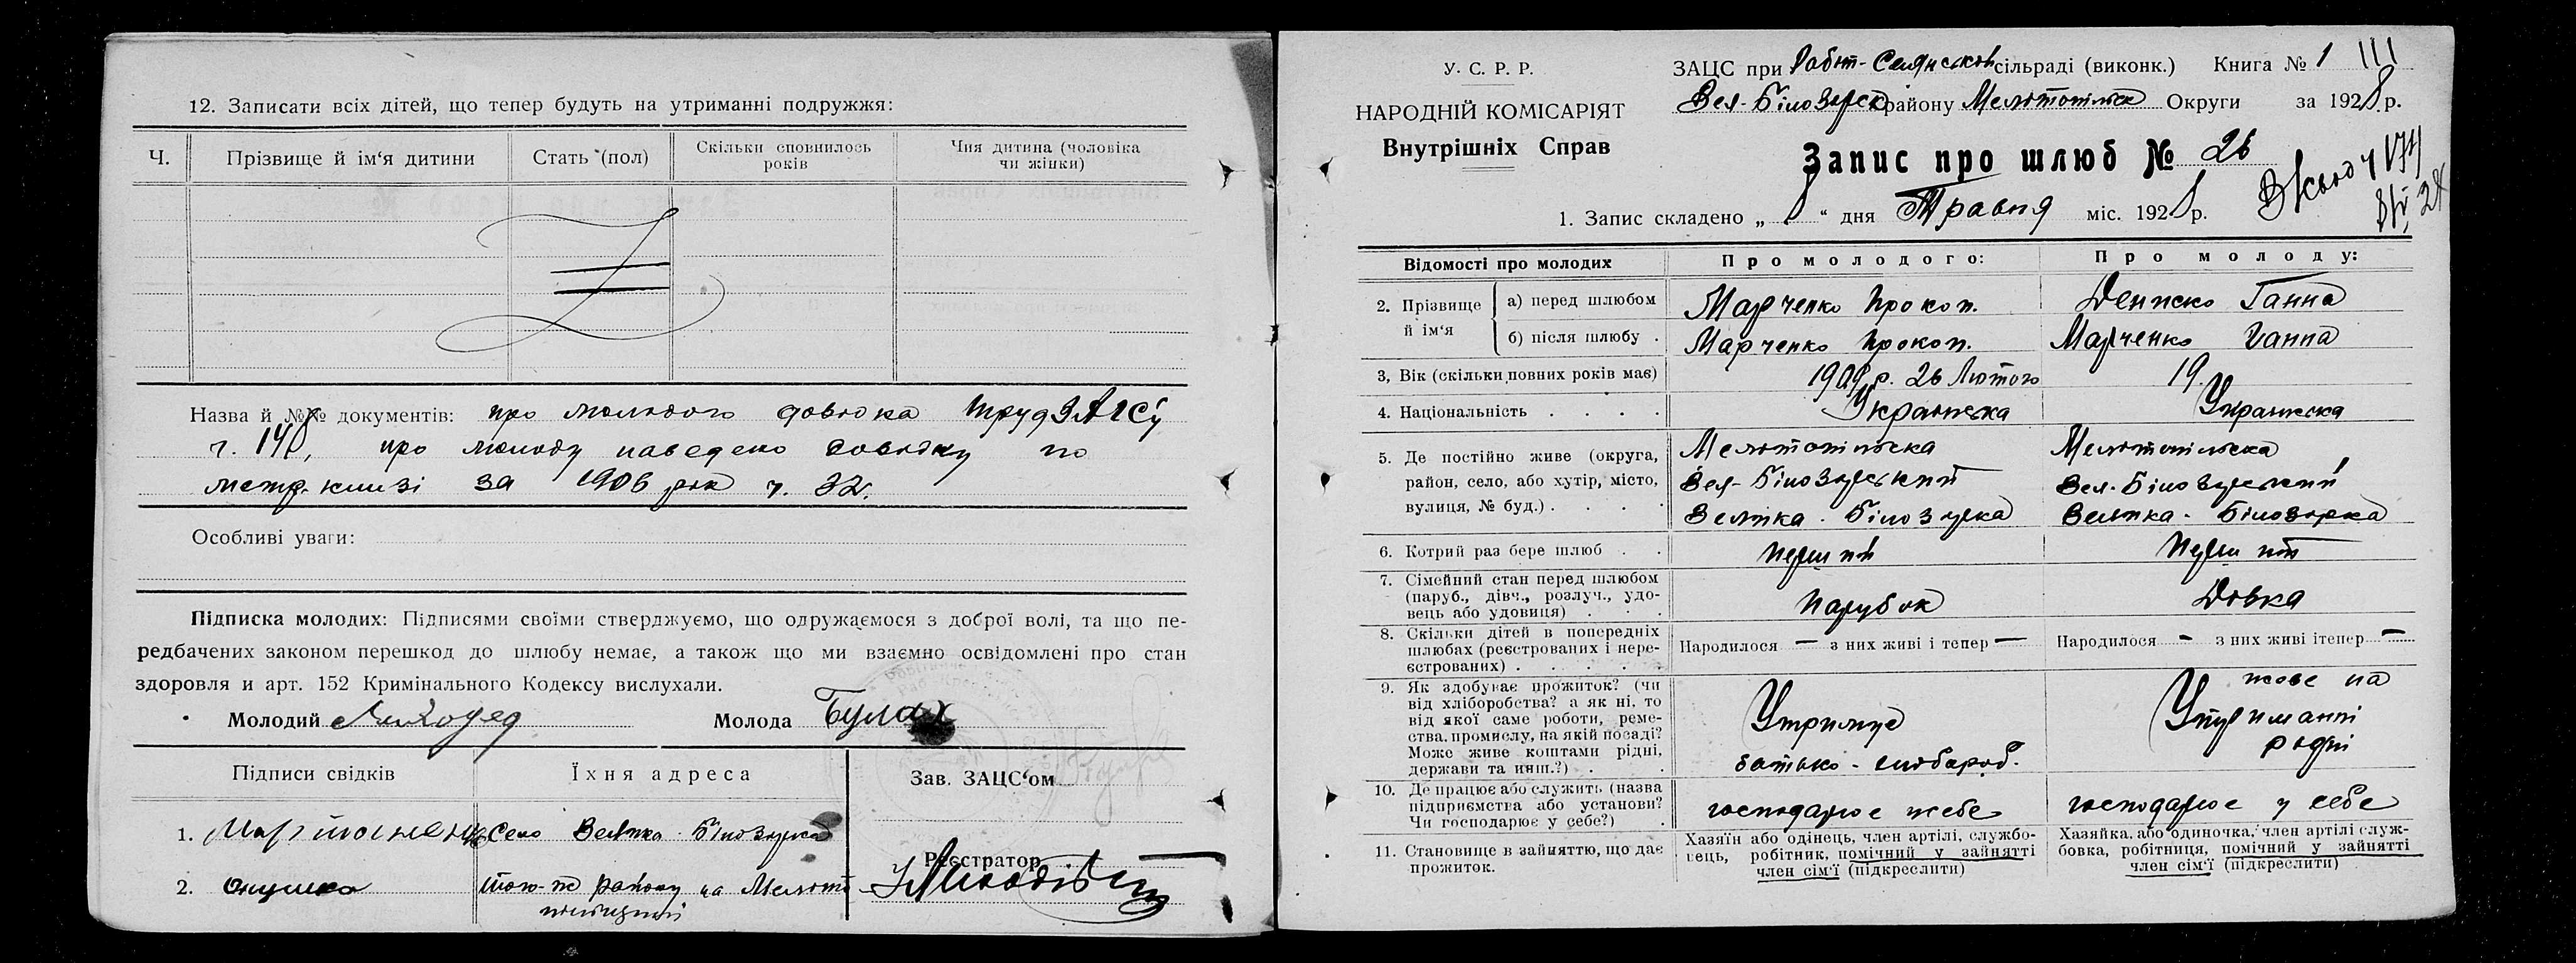 12. Записати всіх дітей, що тепер будуть на утриманні подружжя:
Ч.
Прізвище й ім'я дитини
Стать (пол)
Скільки сповнилось років
Чия дитина (чоловіка чи жінки)
Назва й №№ документів: про молодого довідка
ч. 148, про молоду наведено довідку по
метр. книзі за 1906 рік ч. 32.
Особливі уваги:
Підписка молодих: Підписями своїми стверджуємо, що одружаємося з доброї волі, та що пе-
редбачених законом перешкод до шлюбу немає, а також що ми взаємно освідомлені про стан
здоровля и арт. 152 Кримінального Кодексу вислухали.
Молодий
Молода Булах
Підписи свідків
Їхня адреса
Зав. ЗАЦС'ом
1. Село Велика Білозірка
2. того-ж району на
Реєстратор
У. С. Р. Р.
НАРОДНІЙ КОМІСАРІЯТ
Внутрішніх Справ
ЗАЦС при Робіт-Селянськой сільраді (виконк.) Книга № 1 III
Вел-Білозірськ району Мелітопільск Округи за 1928 р.
Запис про шлюб № 26
1. Запис складено „ 8 “ дня Травня міс. 1928 р.
Відомості про молодих
Про молодого:
Про молоду:
2. Прізвище й ім'я
а) перед шлюбом
Марченко Прокоп.
Ганна
б) після шлюбу .
Марченко Прокоп.
Марченко Ганна
3, Вік (скільки повних років має)
1909 р. 26 Лютого
19.
4. Національність . . . .
Українська
Українська
5. Де постійно живе (округа, район, село, або хутір, місто, вулиця, № буд.) . . . .
Мелітопільска
Вел-Білозірський
Велика-Білозірка
Мелітопільска
Вел-Білозірський
Велика-Білозірка
6. Котрий раз бере шлюб . .
Перший
Перший
7. Сімейний стан перед шлюбом (паруб., дівч., розлуч., удо-вець або удовиця) . . .
Парубок
Дівка
8. Скільки дітей в попередніх шлюбах (реєстрованих і нере-єстрованих) . . . . .
Народилося — з них живі і тепер —
Народилося — з них живі ітепер —
9. Як здобуває прожиток? (чи від хліборобства? а як ні, то від якої саме роботи, реме-ства, промислу, на якій посаді? Може живе коштами рідні, держави та инш.?) .
Утримує
батько - хлібороб.
живе на
Утриманні
рідні
10. Де працює або служить (назва підприємства або установи? Чи господарює у себе?) .
господарює
господарює у себе
11. Становище в зайняттю, що дає прожиток.
Хазяїн або одінець, член артілі, службо-
вець, робітник, помічний у зайнятті
член сім'ї (підкреслити)
Хазяйка, або одиночка, член артілі служ-
бовка, робітниця, помічний у зайнятті
член сім'ї (підкреслити)